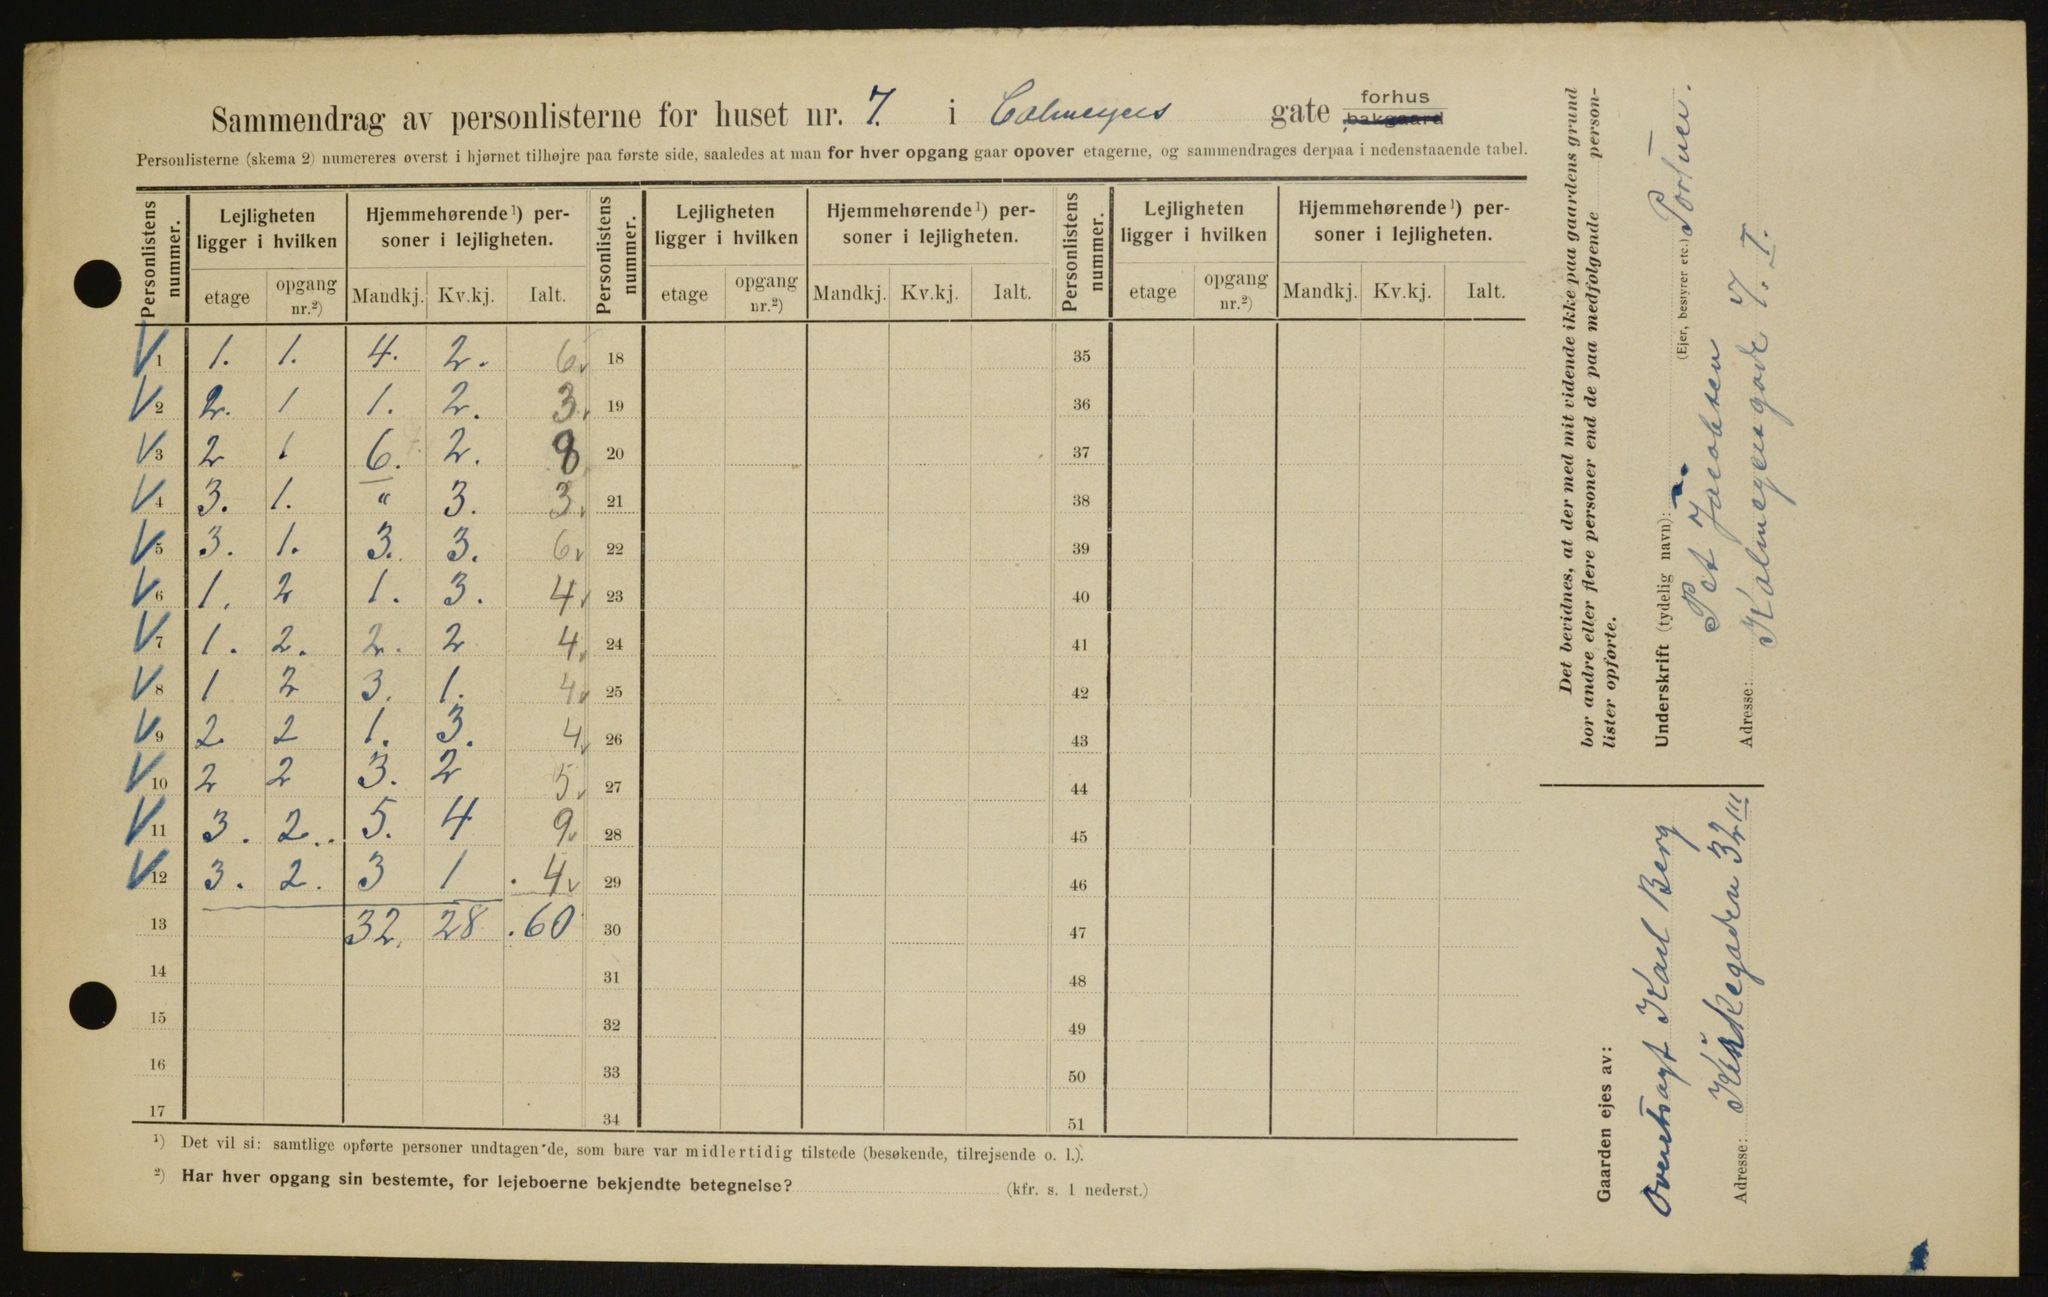 Sammendrag av personlisterne for huset nr. 7. i Calmeyers gate forhus bakgaard
Personlisterne (skema 2) numereres øverst i hjørnet tilhøjre paa første side, saaledes at man for hver opgang gaar opover etagerne, og sammendrages derpaa i nedenstaaende tabel.
Personlistens nummer. Lejligheten ligger i hvilken Hjemmehørende¹) personer i lejligheten. Personlistens nummer. Lejligheten ligger i hvilken Hjemmehørende¹) personer i lejligheten. Personlistens nummer. Lejligheten ligger i hvilken Hjemmehørende¹) personer i lejligheten.
etage opgang nr.²) Mandkj. Kv.kj. Ialt. etage opgang nr.²) Mandkj. Kv.kj. Ialt. etage opgang nr.²) Mandkj. Kv.kj. Ialt.
V 1 1. 1. 4. 2. 6. 18 35
V 2 2. 1 1. 2. 3. 19 36
V 3 2 1 6. 2. 8 20 37
V 4 3. 1. " 3. 3. 21 38
V 5 3. 1. 3. 3. 6. 22 39
V 6 1. 2 1. 3. 4. 23 40
V 7 1. 2. 2. 2 4. 24 41
V 8 1 2 3. 1. 4. 25 42
V 9 2. 2 1. 3. 4. 26 43
V 10 2 2 3. 2 5. 27 44
V 11 3. 2.. 5. 4 9. 28 45
V 12 3. 2. 3 1 4. 29 46
13 32. 28 .60 30 47
14 31 48
15 32 49
16 33 50
17 34 51
¹) Det vil si: samtlige opførte personer undtagen de, som bare var midlertidig tilstede (besøkende, tilrejsende o. l.).
²) Har hver opgang sin bestemte, for lejeboerne bekjendte betegnelse? (kfr. s. 1 nederst.)
Det bevidnes, at der med mit vidende ikke paa gaardens grund
bor andre eller flere personer end de paa medfølgende person-
lister opførte.
Underskrift (tydelig navn): (Ejer, bestyrer etc.) Portner.
Pet Jacobsen
Adresse: Kalmeyersgade 7. I.
Gaarden ejes av:
Overretssagf Karl Berg
Adresse: Kirkegaden 32 III